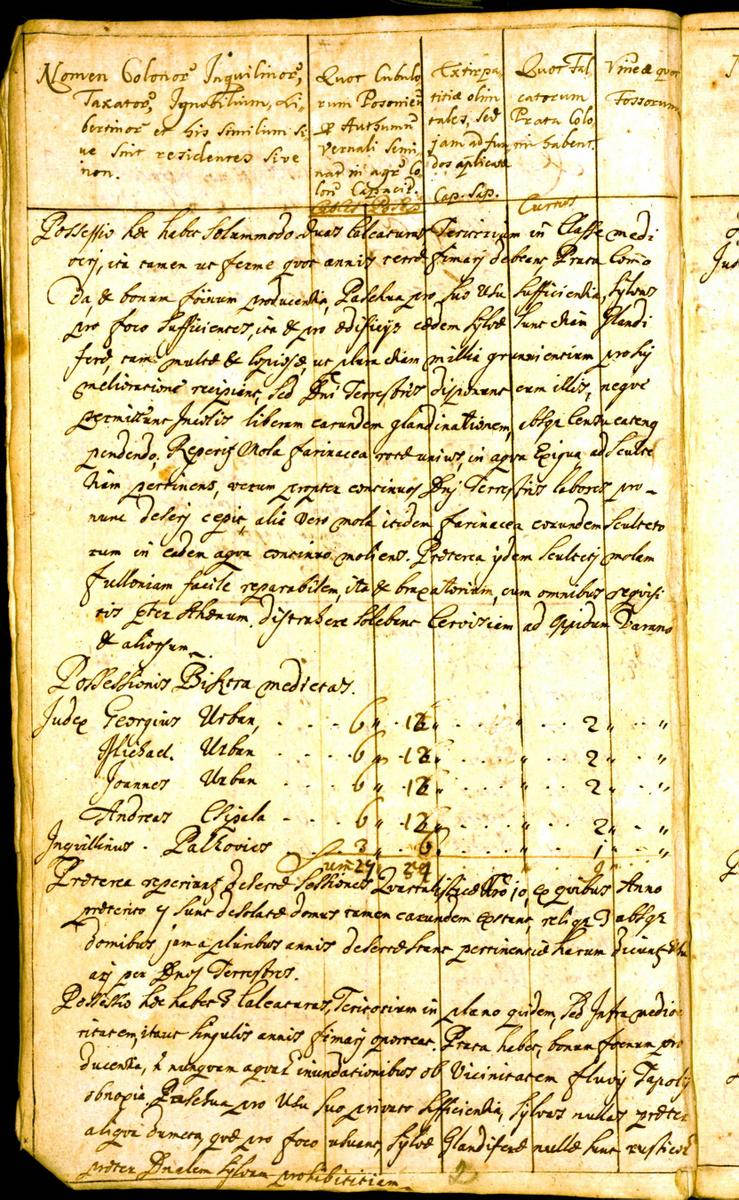 Nomen Colonor Inquilinor,
Taxator, Ignobilium, Li
bertinor et his similium si
ve sint residentes sive
non.
Quot Cubulo
rum Posonien
& Authumn
Vernali Semi
nad in agr Co
lon Capacit.
Extirpa
titiæ olim
tales, sed
jam ad fun
dos aplicatæ
Cap. Sap.
Quot Fal
catorum
Prata Colo
ni habent.
Currus
Vineæ quot
Fossorum
Possessio hæc habet Solummodo duas Calcaturas Teritorium in Classe medi
ocri, ita tamen ut ferme quot annis terræ fimari debeant Prata Como
da, & bonum foenum producentia, Pascua pro suo Usu Sufficientia, Sylvas
pro foco Sufficientes, ita & pro ædificijs eædem Sylvæ sunt etiam Glandi
feræ, tam multæ & Copiosæ, ut plura etiam millia grunnientium pro sui
melioratione recipiant, Sed Dni Terrestres disponunt cum illis, neque
permittunt Incolis liberam earundem glandinationem, absque Censu eatenq
pendendo, Reperit Mola farinacea rotæ unius, in aqua Exigua ad Sculte
tiam pertinens, verum propter continuos Dni Terrestris labores pro
nunc deseri cepit, alia vero mola itidem farinacea eorundem Scultето
rum in eadem aqua continuo molens. Præterea ijdem Sculteti molam
fulloniam facile reparabilem, ita & braxatorium, cum omnibus requisi
tis pter Ahenum, distrahere solebant Cervisiam ad Opidum Varano
& aliorsum
Possessionis Bistra medietas.
Judex Georgius Urban, 6 12 2
Michael Urban 6 12 2
Joannes Urban 6 12 2
Andreas 6 12 2
Inquillinus Palkovics 3 6 1
Sum 27 54 9
Præterea reperiunt desertæ Sessiones Quartalisticæ Nro 10, ex quibus Anno
præterito sunt desolatæ domus tamen earundem extant, reliqæ 3 absqe
domibus jam a pluribus annis desertæ stant pertinentiæ harum dicunt
ari per Dnos Terrestres.
Possessio hæc habet 3 Calcaturas, Teritorium in plano quidem, sed Infra medio
critatem, itaut singulis annis fimari oporteat. Prata habet, bonum foenum pro
ducentia, nunquam aquar inundationibus ob Vicinitatem fluvij Tapoly
obnoxia, Pascua pro Usu suo privato Sufficientia, Sylvas nullas præter
aliqua dumeta, quæ pro foco utuntur, Sylvæ Glandiferæ nullæ sunt rusticæ
præter Dnalem Sylvam prohibititiam.
2